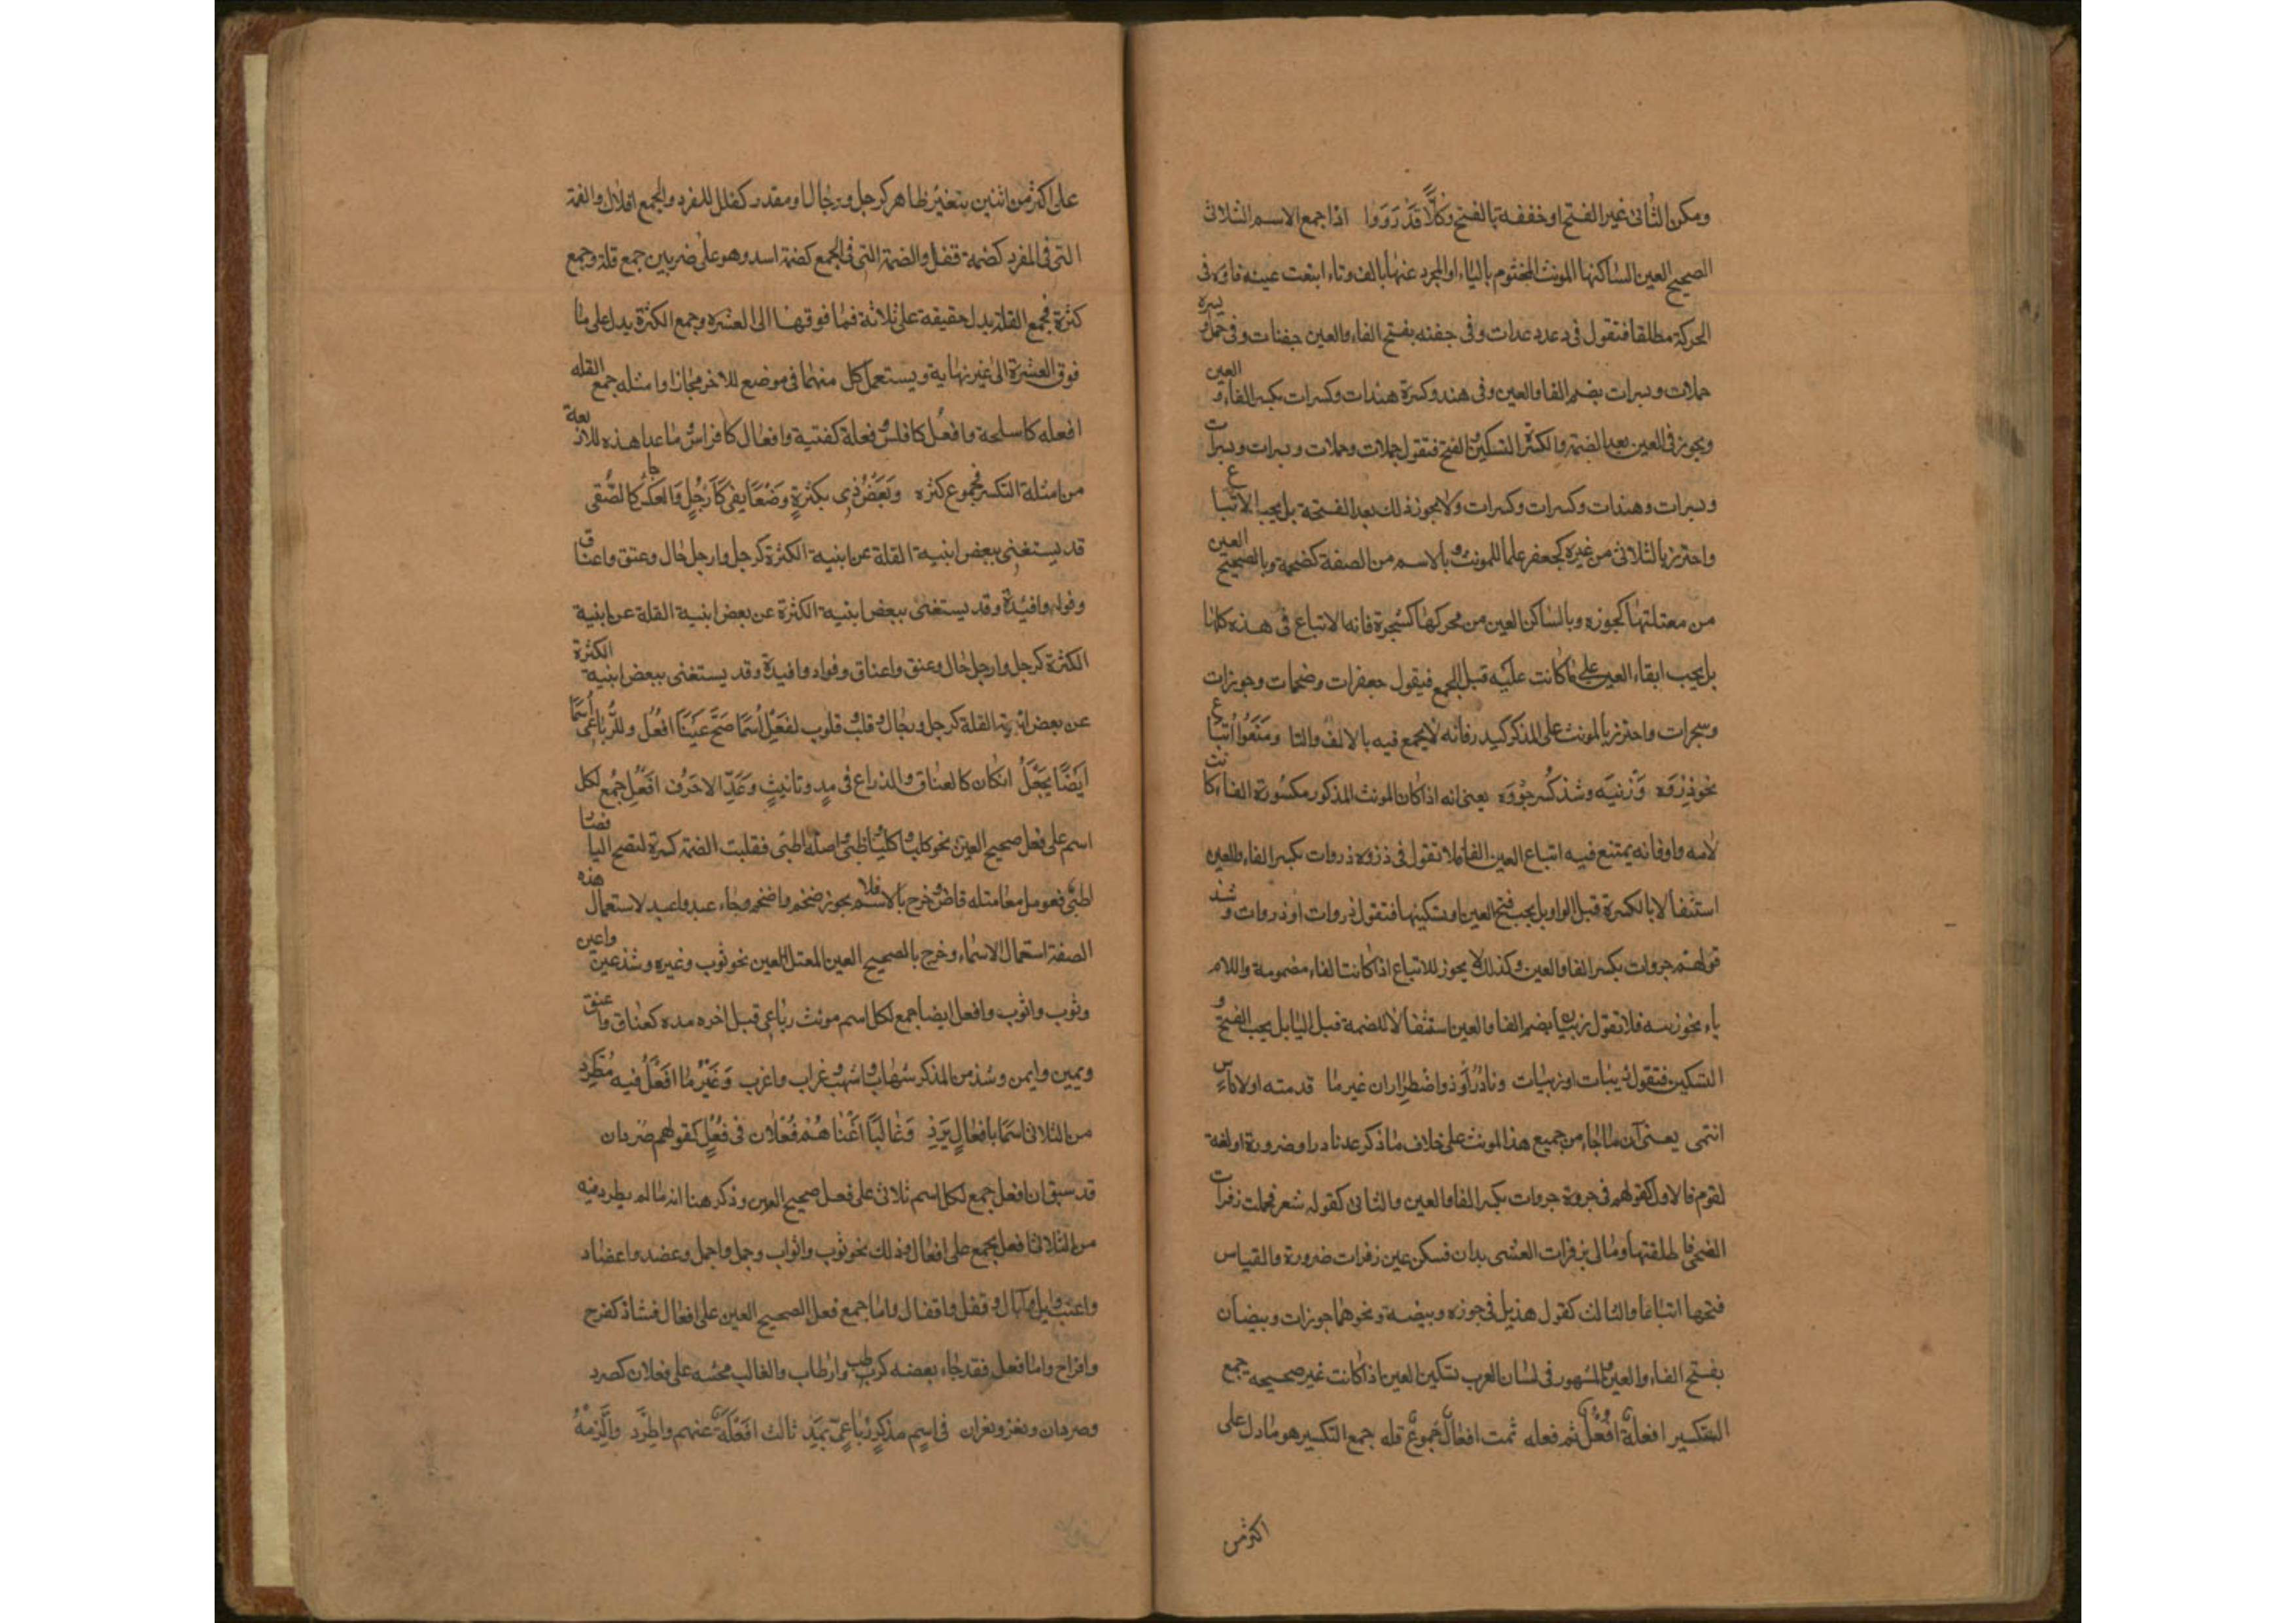 ومكن الثانى غير الفتح او خففه بالفتح فَكُلًّا قَدْ رَوَوا اذا جمع الاسم الثلاثى
الصحيح العين الساكنها المونث المختوم بالياء او المجرد عنها بالف وتاء ابتعت عينه فاؤه فى
الحركة مطلقا فتقول فى دعد دعدات وفى جفنه بفتح الفاء والعين جفنات وفى جملة
حملات وبسرات بضم الفا والعين وفى هند وكسرة هندات وكسرات بكسر الفاء و العين
ويجوز فى العين بعد الضمة والكسرة التسكين والفتح فتقول جملات وحملات وبسرات وبسرات
وبسرات وهندات وكسرات وكسرات ولا يجوز ذلك بعد الفتحة بل يجب الاتباع
واحترز بالثلاثى من غيره كجعفر علما للمونث وبالاسم من الصفة كضخمة وبالصحيح العين
من معتلتها كجوزه وبالساكن العين من محركها كشجرة فانه لا اتباع فى هذه كلها
بل يجب ابقاء العين على ما كانت عليه قبل الجمع فيقول جعفرات وضخمات وجوزات
وسجرات واحترز بالمونث على المذكر كبدر فانه لا يجمع فيه بالالف والتا ومَنَعُوا اتباع
نحو ذِرْوَه وَزُبْيَه وشذ كَسْر جِرْوَه يعنى انه اذا كان المونث المذكور مكسورة الفاء كانت
لامه واوفانه يمتنع فيه اتباع العين الفا فلا تقول فى ذروه ذروات بكسر الفاء والعين
استثقالا بالكسرة قبل الواو بل يجب فتح العين او تسكينها فتقول ذروات او ذروات وشذ
قولهم جروات بكسر الفا والعين وكذلك لا يجوز للاتباع اذا كانت الفاء مضمومة واللام
ياء نحو زبيه فلا تقول زبيات بضم الفا والعين استثقالا للضمة قبل اليا بل يجب الفتح و
التسكين فتقول زبيات او زبيات ونَادِرٌ أَوْ ذُو اضْطِرَارٍ غير ما قدمته او لاناسٍ
انتمى يعنى ان ما جاء من جميع هذا المونث على خلاف ما ذكر عد نادرا وضرورة او لغة
لقوم فالاول كقولهم فى جروة جروات بكسر الفا والعين والثانى كقوله شعر فحملت زفرات
الضحى فاطلقتها وما لى بزفرات العشى يدان فسكن عين زفرات ضرورة والقياس
فتحها اتباعا والثالث كقول هذيل فى جوزه وبيضه ونحوهما جوزات وبيضات
بفتح الفاء والعين والمشهور فى لسان العرب تسكين العين اذا كانت غير صحيحة جمع
التكسير افعلةٌ افْعُلٌ ثم فعله ثمت افعالٌ جموع قله جمع التكسير هو ما دل على
اكثر من
على اكثر من اثنين بتغيير ظاهر كرجل ورجال او مقدر كفلك للمفرد والجمع افلاك والضمة
التى فى المفرد كضمة قفل والضمة التى فى الجمع كضمة اسد وهو على ضربين جمع قلة وجمع
كثرة فجمع القلة يدل حقيقه على ثلاثة فما فوقها الى العشره وجمع الكثرة يدل على ما
فوق العشرة الى غير نهاية ويستعمل كل منهما فى موضع للاخر مجازا وامثله جمع القله
افعله كاسلحة وافعل كافلس وفعلة كفتية وافعال كافراس وما عدا هذه للاربعة
من امثلة التكسير فجموع كثره وبَعْضُ ذِى بكثرةٍ وَضْعًا يفى كَأَرْجُلٍ وَالعَكْسُ جا كالصُّفِى
قد يستغنى ببعض ابنية القلة عن ابنية الكثرة كرجل وارجل خال وعنق واعناق
وفواد وافيدة وقد يستغنى ببعض ابنية الكثرة عن بعض ابنية القلة عن ابنية
الكثرة كرجل وارجل خال وعنق واعناق وفواد وافيدة وقد يستغنى ببعض ابنية الكثرة
عن بعض ابنية القلة كرجل ورجال وقلب قلوب لفَعْلٍ اسْمًا صَحَّ عَيْنًا افْعُلُ وللرُّبَاعى اسْمًا
ايَضًا يجْعَلُ انكان كالعناق والذراع فى مدٍ وتانيثٍ وَعَدِّ الاحْرُف افْعُل جمع لكل
اسم على فعل صحيح العين نحو كلب واكلب وظبى واصله اظبى فقلبت الضمة كسرة لتصح اليا فصا
اظبى فعومل معامتله قاض وخرج بالاسم فلا يجوز ضخم واضخم وجاء عبد واعبد لاستعمال هذه
الصفة استعمال الاسماء وخرج بالصحيح العين المعتل العين نحو ثوب وغيره وشذ عين واعين
وثوب واثوب وافعل ايضا جمع لكل اسم مونث رباعى قبل اخره مده كعناق واعنق
ويمين وايمن وشذ من المذكر شهاب واشهب وغراب واغرب وَغَيْرُ ما افْعُلُ فيه مُطَّرِد
من الثلاثى اسْمًا بافْعَالٍ يَرِد وَغَالِبًا أَغْنَاهُمُ فُعْلان فى فُعَلٍ كقولهم صردان
قد سبق ان افعل جمع لكل اسم ثلاثى على فعل صحيح العين وذكر هنا انه ما لم يطرد فيه
من الثلاثى افعل يجمع على افعال وذلك نحو ثوب واثواب وجمل واجمل وعضد واعضاد
واعنب وابل وآبال وقفل واقفال واما جمع فعل الصحيح العين على افعال فشاذ كفرخ
وافراخ واما فعل فقد جاء بعضه كرطب وارطاب والغالب مجيئه على فعلان كصرد
وصردان ونغر ونغران فى اسم مذكرٍ رُبَاعىّ بمَدّ ثالث افْعِلَةٌ عنهم واطرَد وَالْزَمْهُ